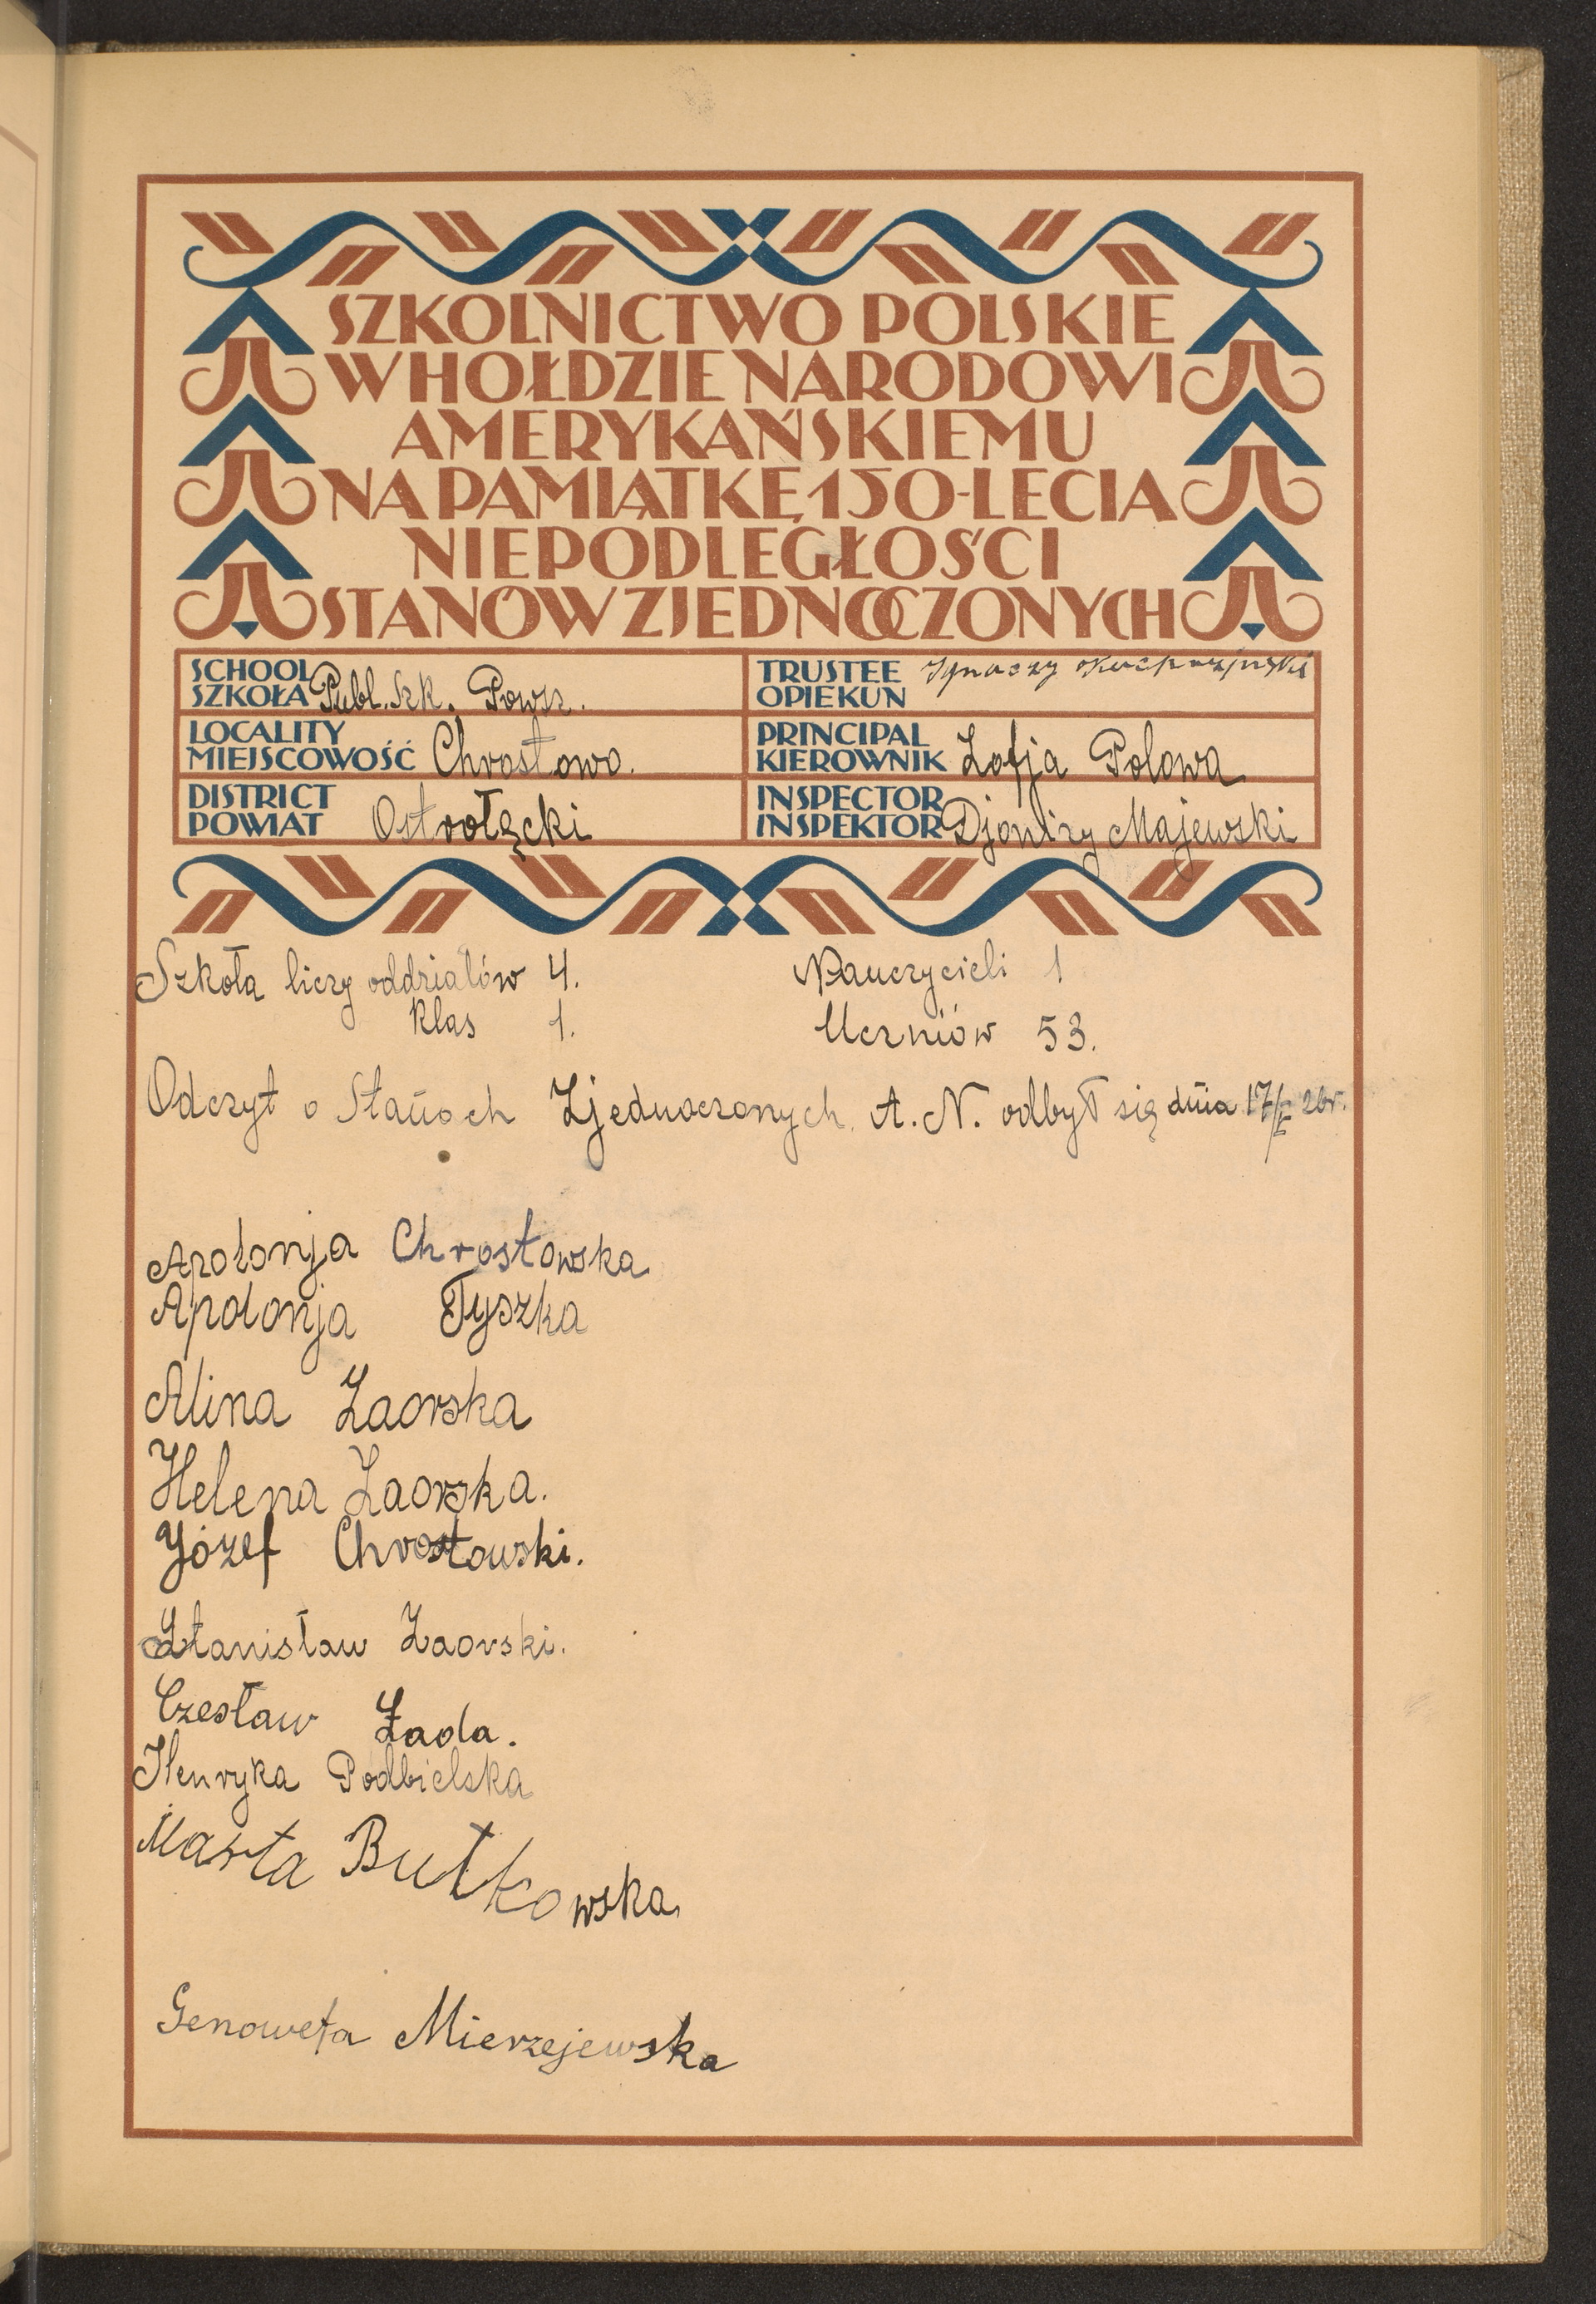 SZKOLNICTWO POLSKIE
W HOŁDZIE NARODOWI
AMERYKAŃSKIEMU
NA PAMIĄTKĘ 150-LECIA
NIEPODLEGŁOŚCI
STANÓW ZJEDNOCZONYCH
SCHOOL
SZKOŁA Publ. Szk. Powsz.
TRUSTEE
OPIEKUN Ignaczy
LOCALITY
MIEJSCOWOŚĆ Chrostowo.
PRINCIPAL
KIEROWNIK Zofja Polowa
DISTRICT
POWIAT Ostrołęcki
INSPECTOR
INSPEKTOR Djonizy Majewski
Szkoła liczy oddziałów 4. Nauczycieli 1
klas 1. Uczniów 53.
Odczyt o Stanach Zjednoczonych A. N. odbył się dnia 26r.
Apolonja Chrostowska
Apolonja Tyszka
Alina Zaorska
Helena Zaorska.
Józef Chrostowski.
Stanisław Zaorski.
Czesław Żada.
Henryka Podbielska
Marta Butkowska
Genowefa Mierzejewska